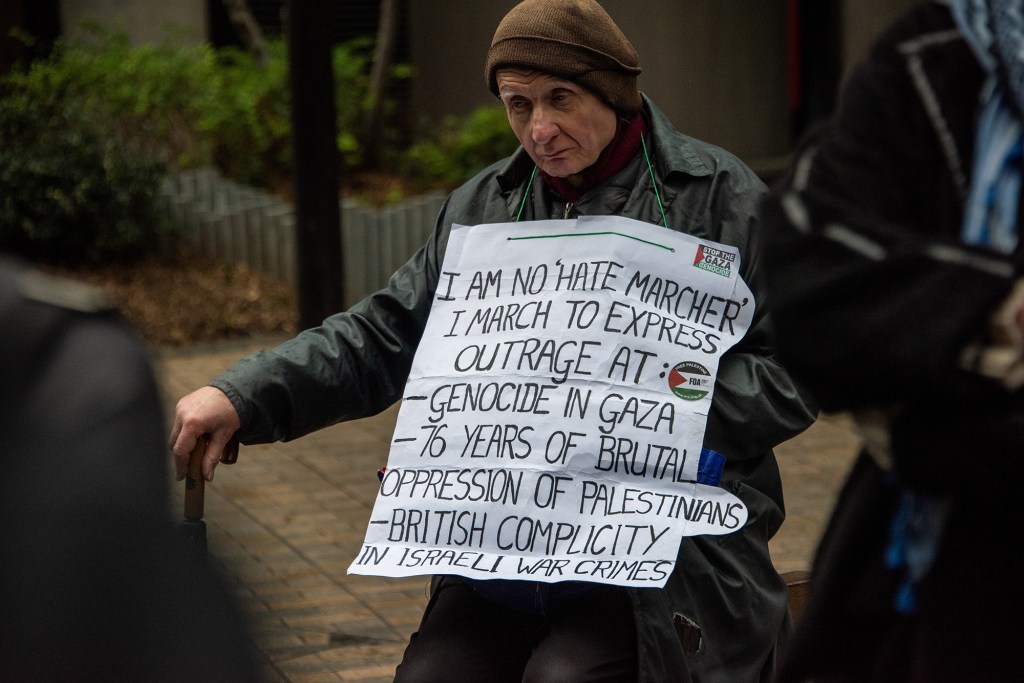 STOP THE
GAZA
GENOCIDE
I AM NO 'HATE MARCHER'
I MARCH TO EXPRESS
OUTRAGE AT :
FREE PALESTINE
FOA
-GENOCIDE IN GAZA
-76 YEARS OF BRUTAL
OPPRESSION OF PALESTINIANS
-BRITISH COMPLICITY
IN ISRAELI WAR CRIMES